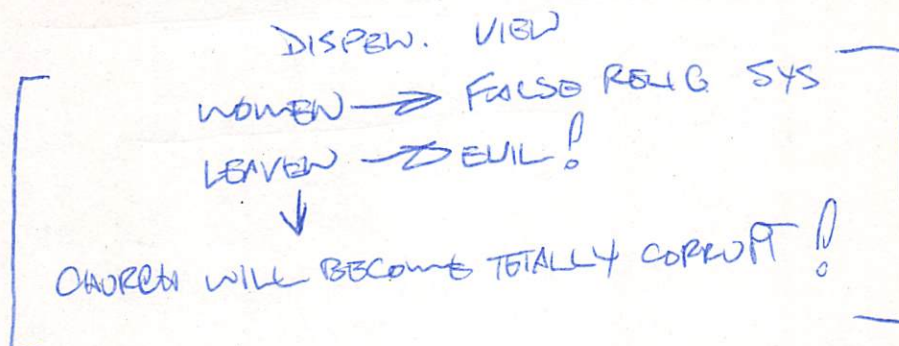 DISPEN. VIEW
WOMEN → FALSE RELIG SYS
LEAVEN → EVIL!
↓
CHURCH WILL BECOME TOTALLY CORRUPT!